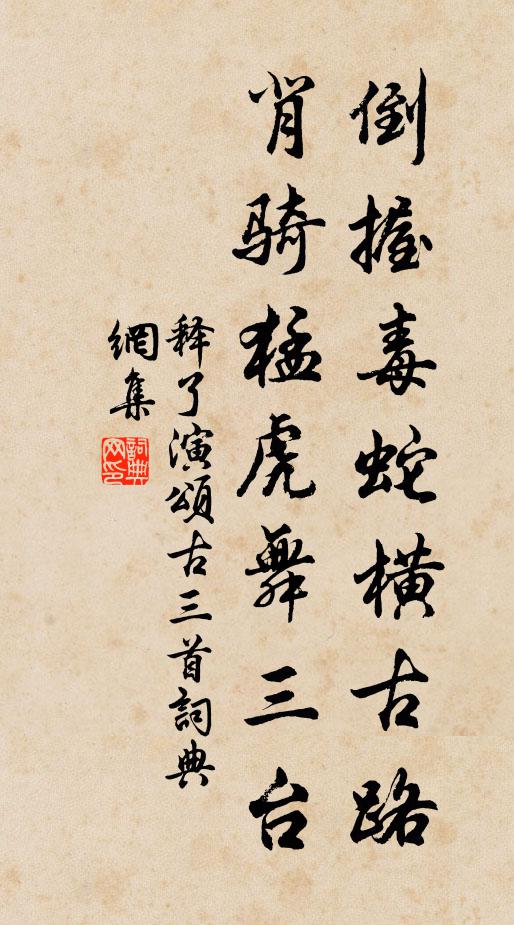 倒握毒蛇横古路
背骑猛虎舞三台
释了演颂古三首詞典
網集
詞典网印